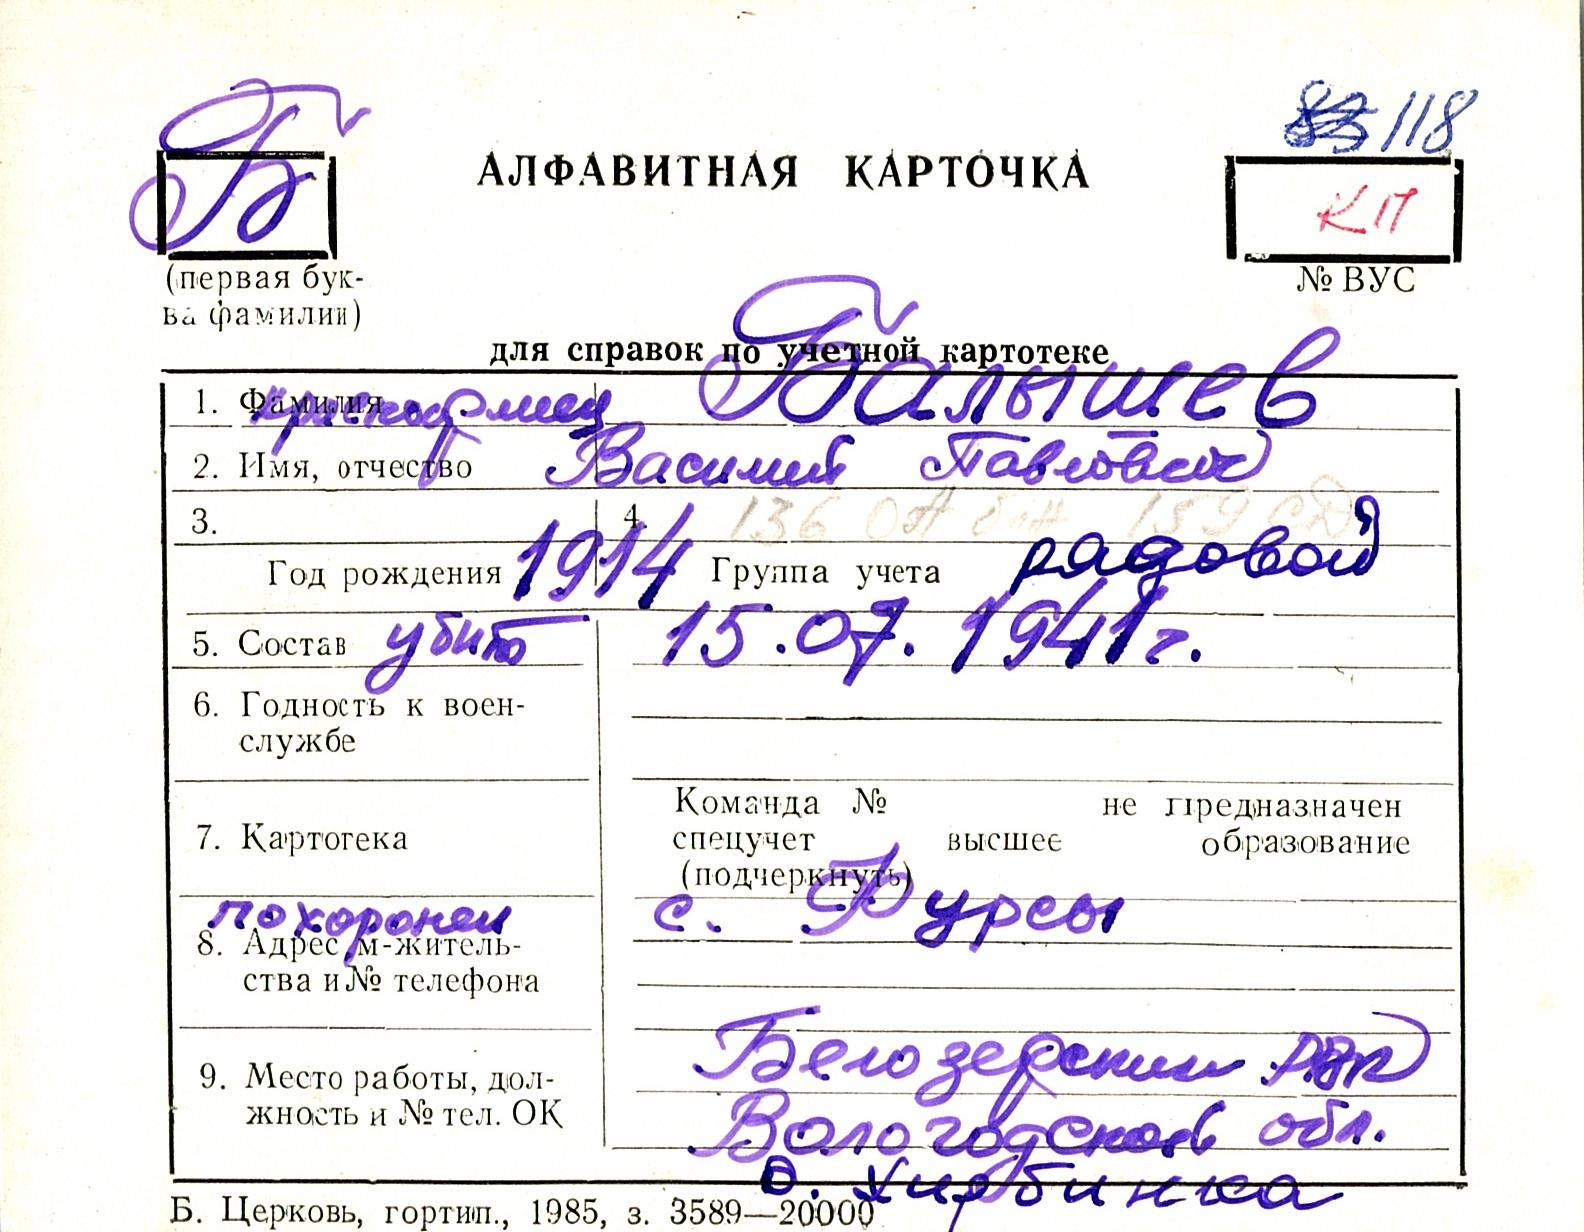 118
Б
АЛФАВИТНАЯ КАРТОЧКА
КП
(первая бук-
ва фамилии)
№ ВУС
для справок по учетной картотеке
1. Фамилия Балышев
2. Имя, отчество Василий Павлович
3. 4. 136 ОА бат 159 СД
Год рождения 1914 Группа учета рядовой
5. Состав убит 15.07.1941г.
6. Годность к воен-
службе
7. Картотека
Команда № не предназначен
спецучет высшее образование
(подчеркнуть)
похоронен с. Фурсы
8. Адрес м-житель-
ства и № телефона
Белозерский РВК
9. Место работы, дол-
жность и № тел. ОК
Вологодской обл.
Б. Церковь, гортип., 1985, з. 3589—20000